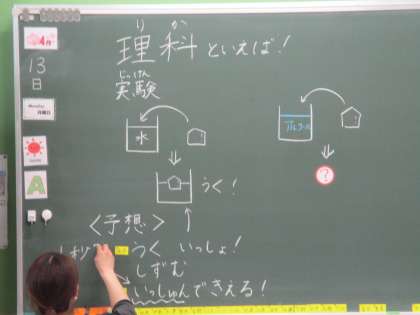 4月
13
日
Monday
月曜日
A
りか
理科といえば!
じっけん
実験
水
アルコール
?
うく!
<予想>
うく いっしょ!
しずむ
いっしゅんできえる!